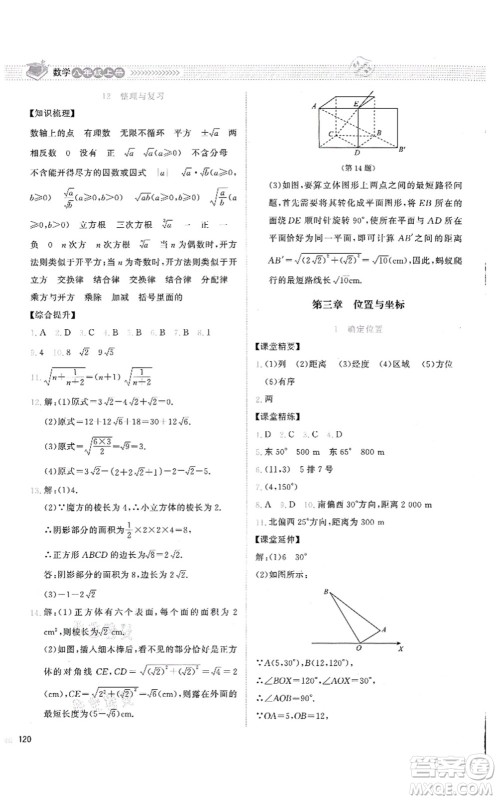 数学八年级上册
12 整理与复习
【知识梳理】
数轴上的点 有理数 无限不循环 平方 ±√a √a
√a(a≥0) 0 0 没有平方根 不含分母
不含能开得尽方的因数或因式 |a| √ab(a≥0,
b≥0) √(a/b)(a≥0,b>0) √ab(a≥0,b≥0) √(a/b)(a≥0,
b>0) 立方根 三次方根 ∛a 一 正 一
负 0 n次方 n次方根 ⁿ√a 当a为偶数时,开方
法则类似于开平方 当n为奇数时,开方法则类似于
开立方 交换律 结合律 交换律 结合律 分配律
乘方与开方 乘除 加减 括号里面的
【综合提升】
1. A 2. D 3. B 4. D 5. A 6. D 7. A 8. C
9. 4 10. 8√2 9√5
11. √(n+1/(n+2))=(n+1)√(1/(n+2))
12. 解:(1)原式=3√2-2√2=√2.
(2)原式=2√6+√6=3√6.
(3)原式=√(6×3/2)=√9=3.
(4)原式=(2+2√2)÷√2=√2+2.
13. 解:(1)4.
(2)∵魔方的棱长为4÷2=2,
∴阴影部分面积为1/2×2×2×4=8(cm²).
∴正方形ABCD的边长为√8=2√2 cm.
答:阴影部分的边长为2√2 cm.
(3)-1-2√2
14. 解:(1)正方体有六个面,每个面的面积为2
cm²,则棱长为√2 cm.
(2)如图,插入细木棒后,在正方体内最长为正方体
的对角线CE,CD=√((√2)²+(√2)²)=√4=2
(cm),CE=√(2²+(√2)²)=√6(cm),则露在外面的
最短长度为(5-√6)cm.
A E B C D B B′
(第14题)
(3)如图,要算立体图形上两点之间的最短路径长
度,首先需要展开为平面图形,将EB所在的平面
由面DE顺时针旋转90°,使所在平面与AD所在
平面恰好为一个平面,连接AB′,此时
AB′=√((2√2)²+(√2)²)=√10(cm),故蚂蚁爬行
的最短路线长√10 cm.
第三章 位置与坐标
1 确定位置
【课堂精要】
1. (1)列 (2)距离 (3)经度 (4)方格 (5)区域
(6)有序
2. 两
【课堂精练】
1. D 2. C 3. D 4. B
5. 东50° 北40° 东35° 北55° 800 m
6. (11,3) 5排7号
7. A 8. D 9. C 10. 南偏西30° 500 m
11. 北偏西25° 300 m
【课堂延伸】
解:(1)6 30°
(2)如图所示:
B A O X
∵A(5,30°),B(12,120°),
∴∠BOX=120°,∠AOX=30°.
∴∠AOB=90°.
∵OA=5,OB=12,
120